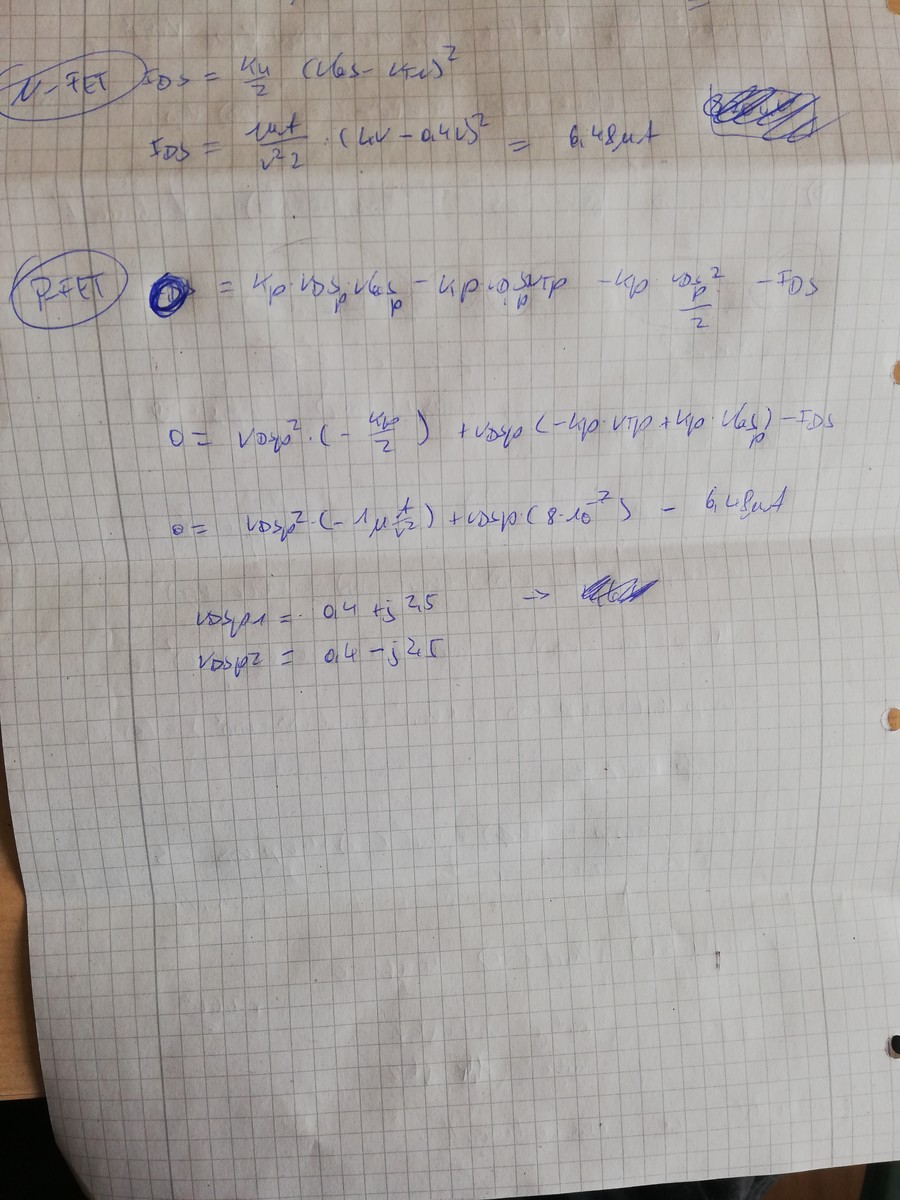 N-FET IDS = Kn/2 (VGS - VTN)²
IDS = 1mA/V²2 · (4V - 0,4V)² = 6,48mA
P-FET = Kp · VDSp VGSp - Kp · VDSp VTp - Kp · VDSp²/2 - IDS
0 = VDSp² · (- Kp/2) + VDSp (-Kp · VTp + Kp · VGSp) - IDS
0 = VDSp² · (- 1μ A/V²) + VDSp · (8 · 10⁻⁷) - 6,48mA
VDSp1 = 0,4 + j 2,5 →
VDSp2 = 0,4 - j 2,5